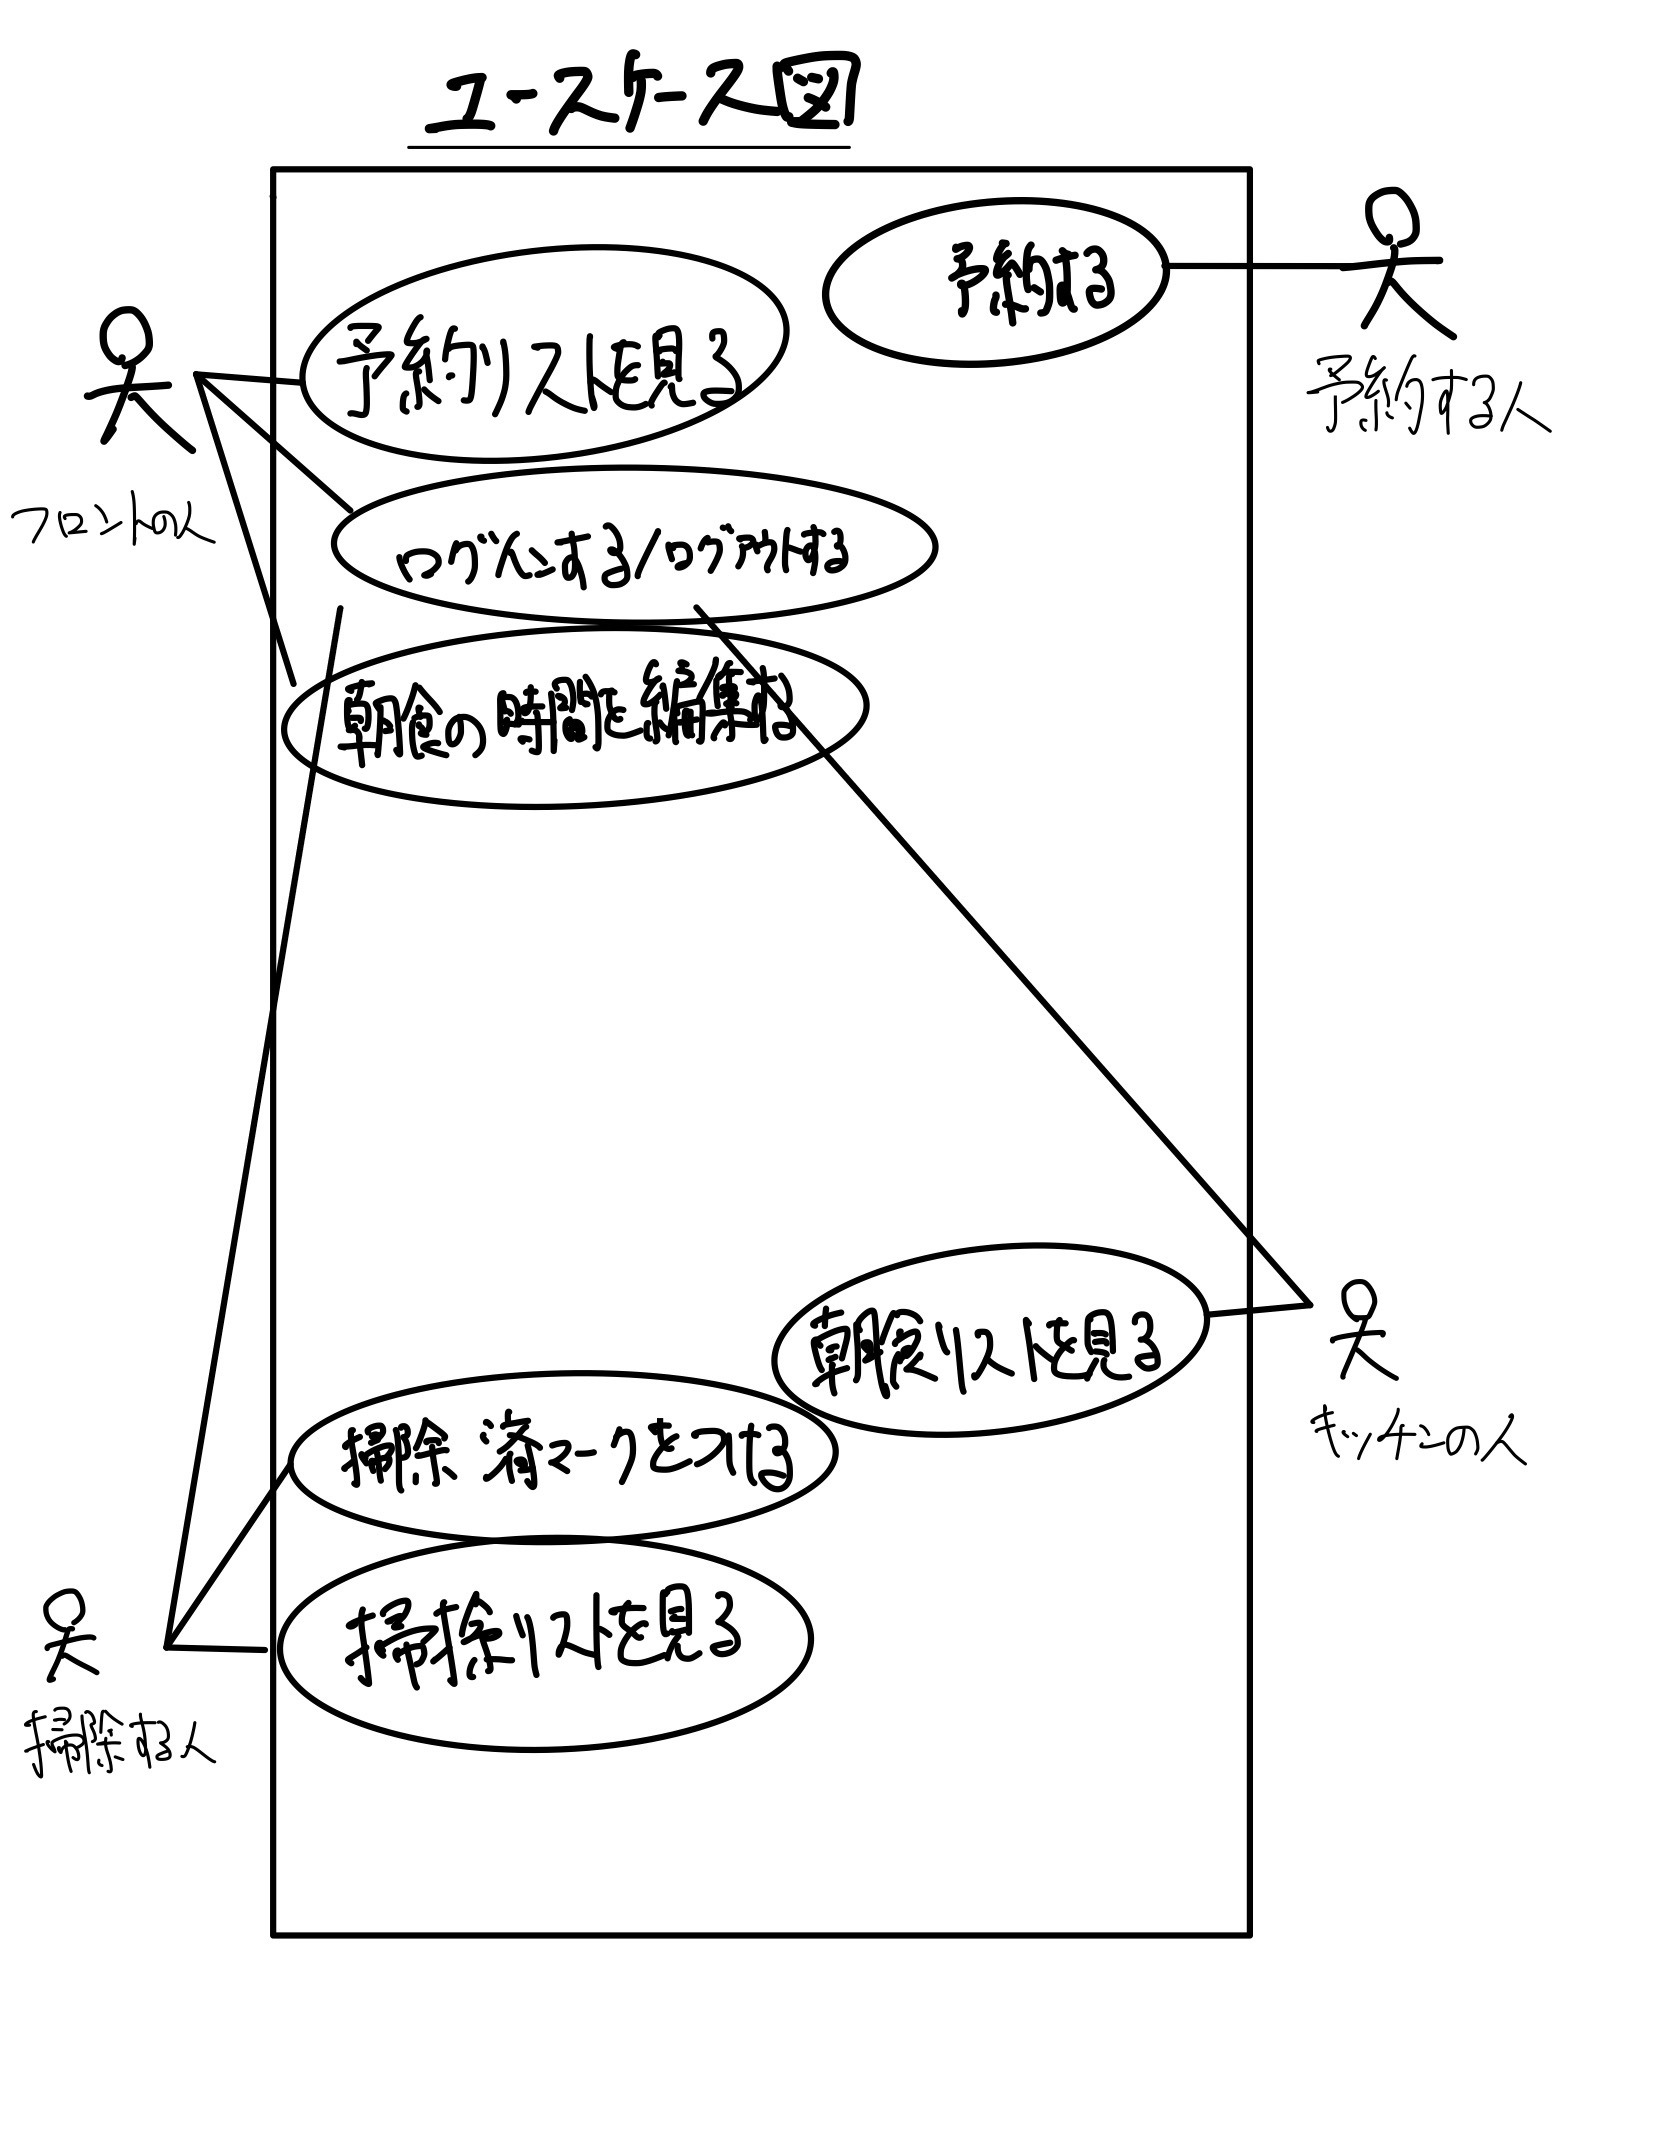 ユースケース図
予約する
予約する人
予約リストを見る
フロントの人
ログインする/ログアウトする
朝食の時間を編集する
朝食リストを見る
キッチンの人
掃除 済マークをつける
掃除リストを見る
掃除する人